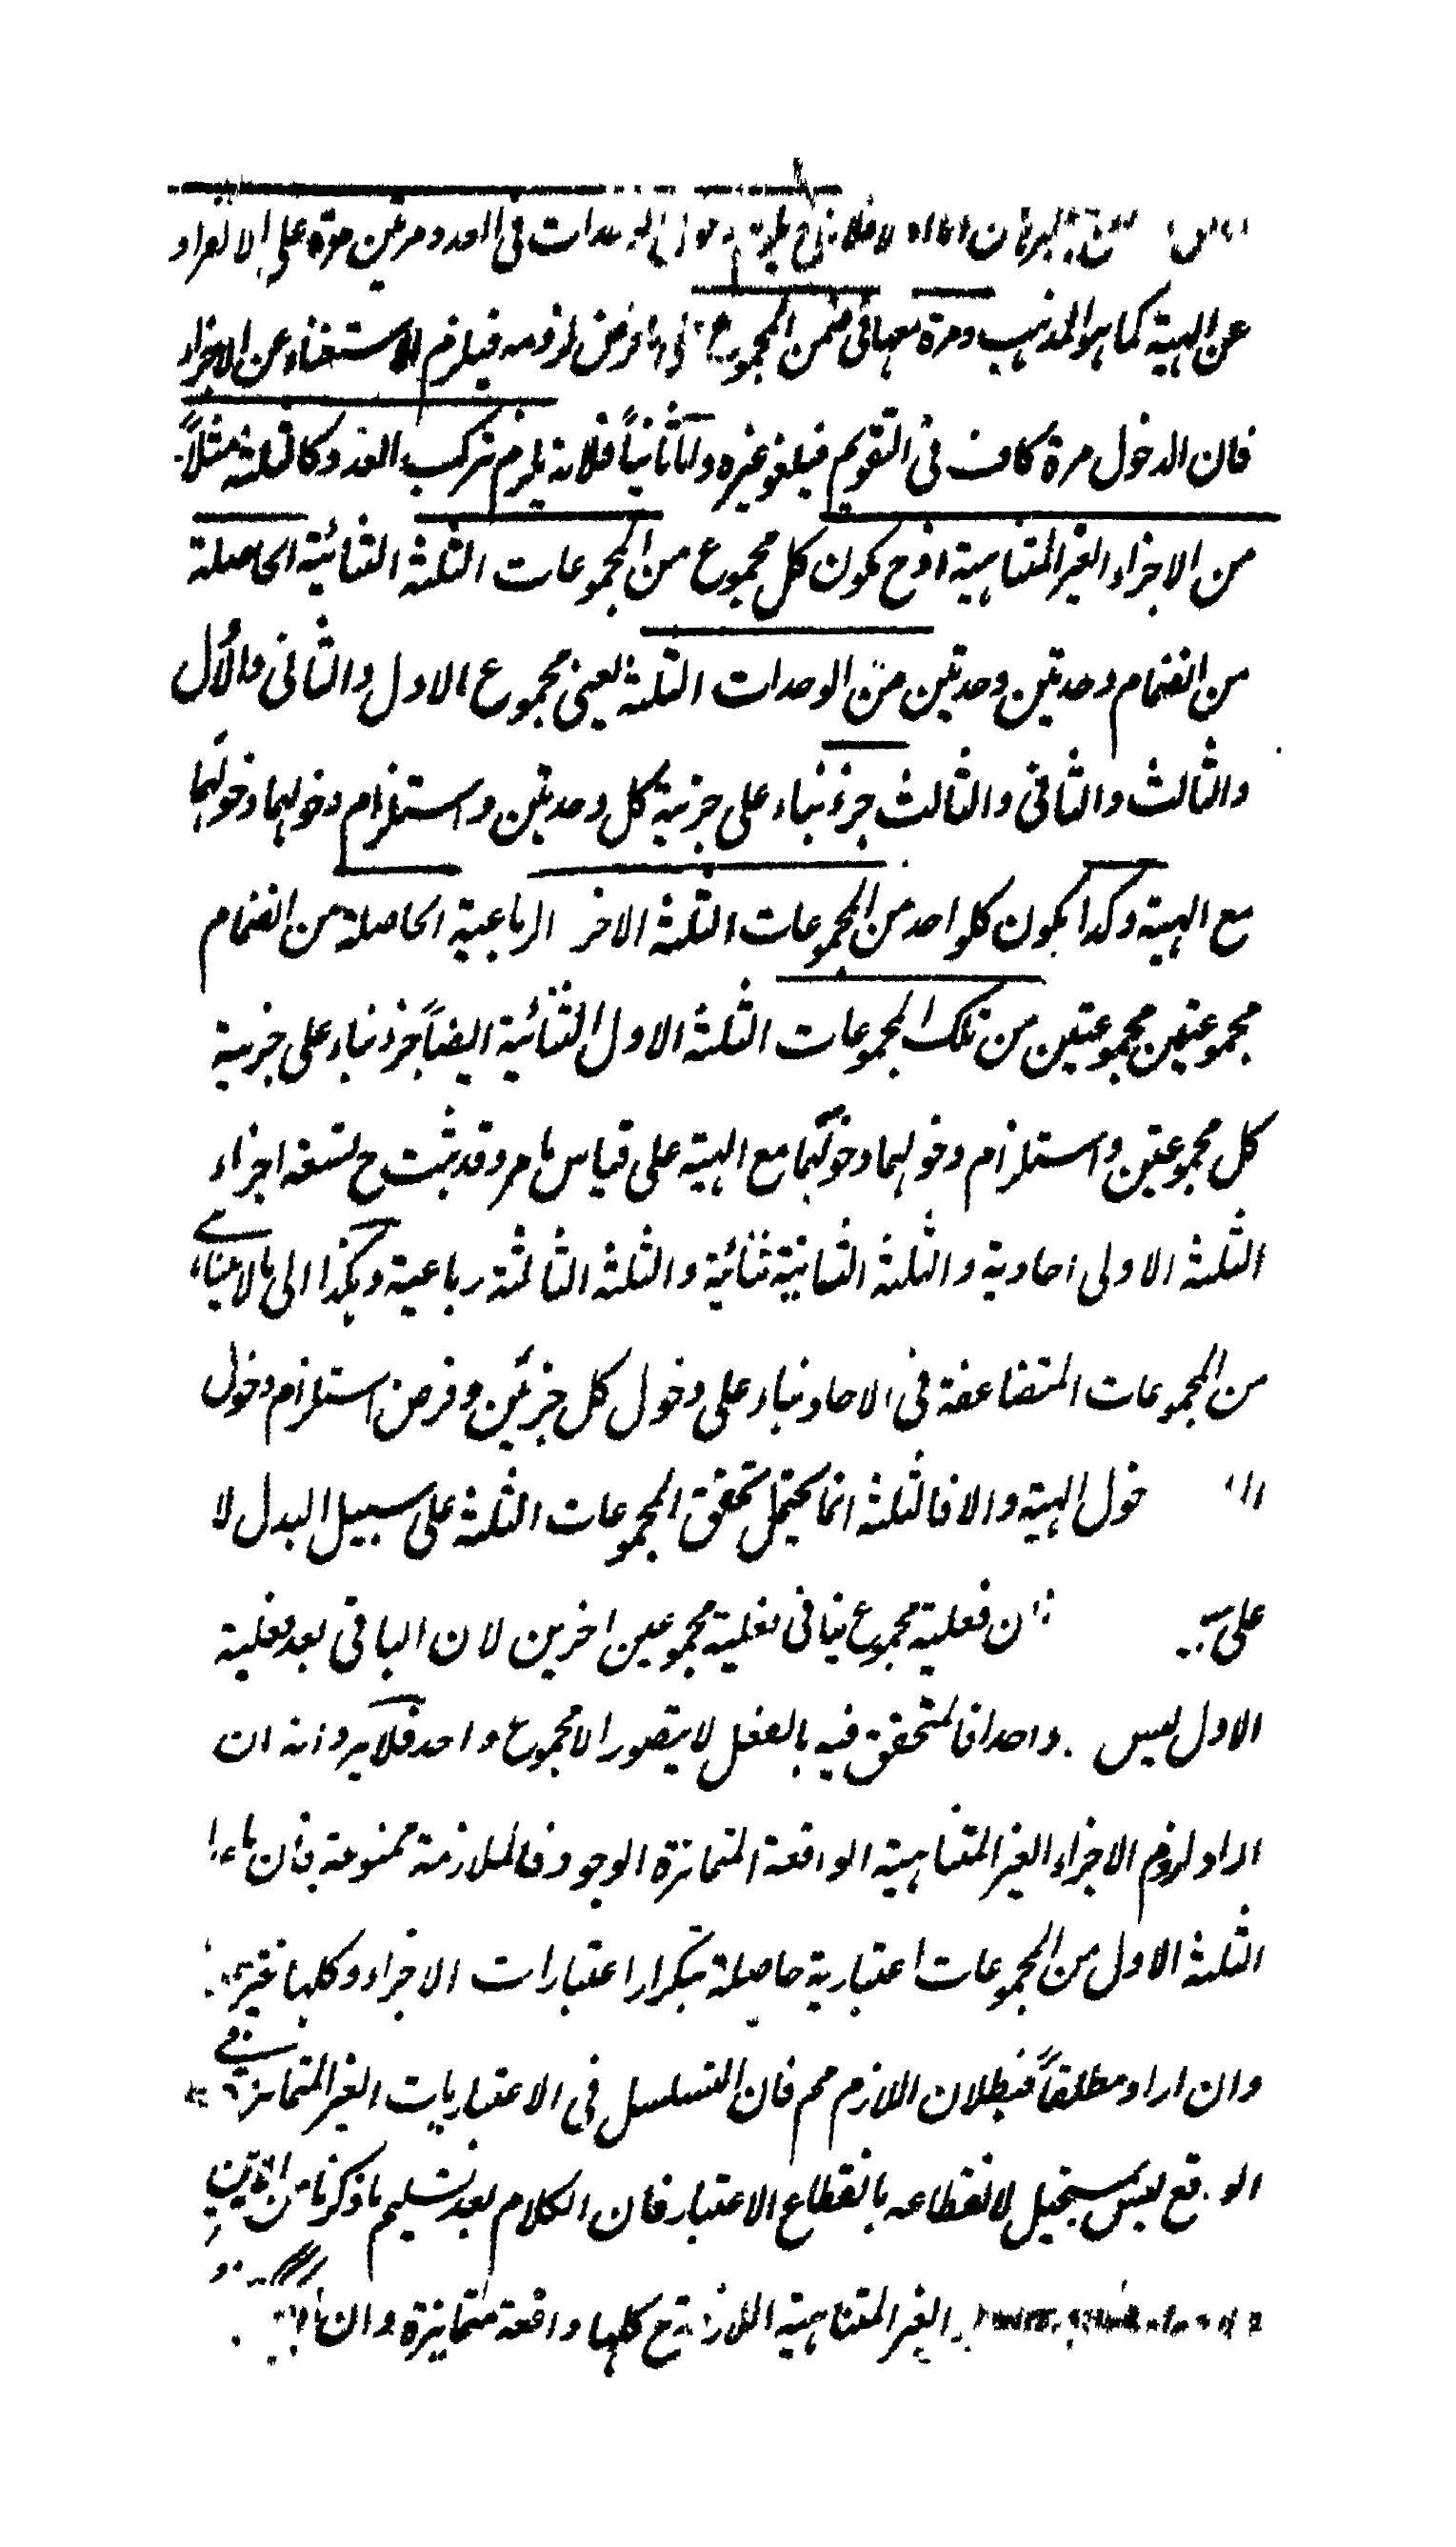 فلانه ح يلزم دخول الوحدات فى العدد مرتين مرة على الانفراد
عن الهيئة كما هو المذهب ومرة معها فى ضمن المجموع لزومه فيلزم الاستغناء عن الاجزاء
فان الدخول مرة كاف فى التقويم فيلغو غيره واما ثانياً فلانه يلزم تركب العدد كالثلثة مثلاً
من الاجزاء الغير المتناهية اذ ح يكون كل مجموع من المجموعات الثلثة الثنائية الحاصلة
من انضمام وحدتين وحدتين من الوحدات الثلثة يعنى مجموع الاول والثانى والاول
والثالث والثانى والثالث جزء بناء على جزئية كل وحدتين واستلزام دخولهما دخولهما
مع الهيئة وكذا يكون كلواحد من المجموعات الثلثة الاخر الرباعية الحاصلة من انضمام
مجموعتين مجموعتين من تلك المجموعات الثلثة الاول الثنائية ايضاً جزء بناء على جزئية
كل مجموعتين واستلزام دخولهما دخولهما مع الهيئة على قياس ما مر وقد ثبت ح تسعة اجزاء
الثلثة الاولى احادية والثلثة الثانية ثنائية والثلثة الثالثة رباعية وهكذا الى ما لا يتناهى
من المجموعات المتضاعفة فى الاحاد بناء على دخول كل جزئين وفرض استلزام دخول
خول الهيئة والا فالثلثة انما يحتمل تحقق المجموعات الثلثة على سبيل البدل لا
على ان فعلية مجموع ينافى فعلية مجموعين اخرين لان الباقى بعد فعلية
الاول ليس واحدا فالمتحقق فيه بالفعل لا يتصور الا مجموع واحد فلا يرد انه ان
اراد لزوم الاجزاء الغير المتناهية الواقعة المتمائزة الوجود فالملازمة ممنوعة فان ما
الثلثة الاول من المجموعات اعتبارية حاصلة بتكرار اعتبارات الاجزاء وكلها غير
وان اراد مطلقاً فبطلان اللازم مم فان التسلسل فى الاعتباريات الغير المتمائزة فى
الواقع ليس بمستحيل لانقطاعه بانقطاع الاعتبار فان الكلام بعد تسليم ما ذكرنا من
الغير المتناهية اللازمة ح كلها واقعة متمائزة وان